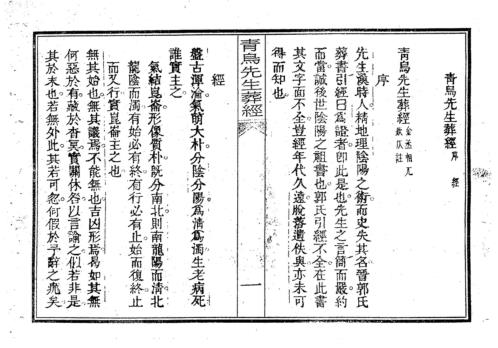 青烏先生葬經 序 經
青烏先生葬經 金丞相兀
欽仄註
序
先生漢時人精地理陰陽之術而史失其名晉郭氏
葬書引經曰為證者即此是也先生之言簡而嚴約
而當誠後世陰陽之祖書也郭氏引經不全在此書
其文字面不全豈經年代久遠脫落遺佚與亦未可
得而知也
青烏先生葬經
一
經
盤古渾淪氣萌大朴分陰分陽為清為濁生老病死
誰實主之
氣結崑崙形像質朴既分南北則南龍陽而清北
龍陰而濁有始必有終有行必有止始而復終止
而又行實崑崙主之也
無其始也無其議焉不能無也吉凶形焉曷如其無
何惡於有藏於杳冥實關休咎以言諭之似若非是
其於末也若無外此其若可忽何假於予辭之疣矣